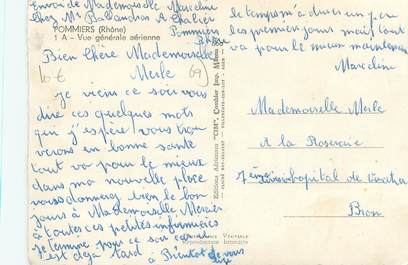 Envoi de Mademoiselle Marceline
chez Mr Ballandras A Chalier
Pommiers
Rhône
POMMIERS (Rhône)
1 A - Vue générale aérienne
Bien Chère Mademoiselle
Merle
10 €
69
je viens ce soir vous
dire ces quelques mots
que j'espère vous trou
verons en bonne santé
tout va pour le mieux
dans ma nouvelle place
vous donnerez bien le bon
jour à Mademoiselle Mercier
à toutes ces petites infirmières
Je termine pour ce soir car il
est déjà tard à Bientôt de vous
lire
le temps m'a durer un peu
les premiers jours mais tout
va pour le mieux maintenant
Marceline
Editions Aériennes "CIM", Combier Imp. Mâcon
Reproduction Interdite
Mademoiselle Merle
A la Roseraie
7ème
hopital de
Bron